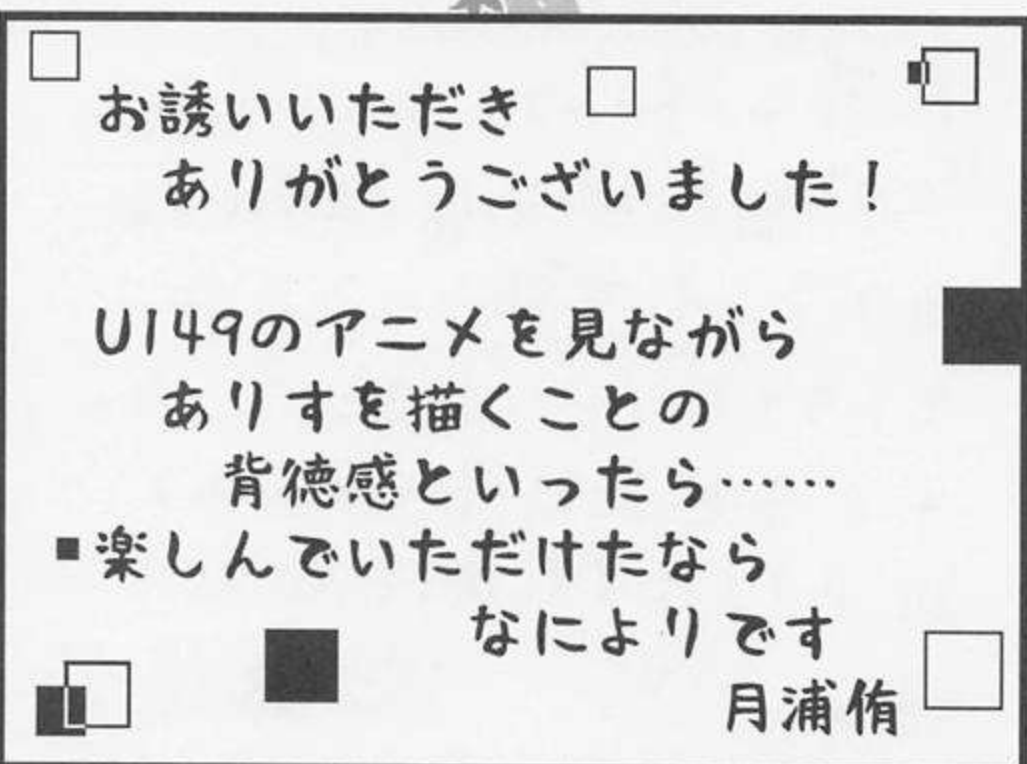 お誘いいただき
ありがとうございました！
U149のアニメを見ながら
ありすを描くことの
背徳感といったら……
楽しんでいただけたなら
なによりです
月浦侑